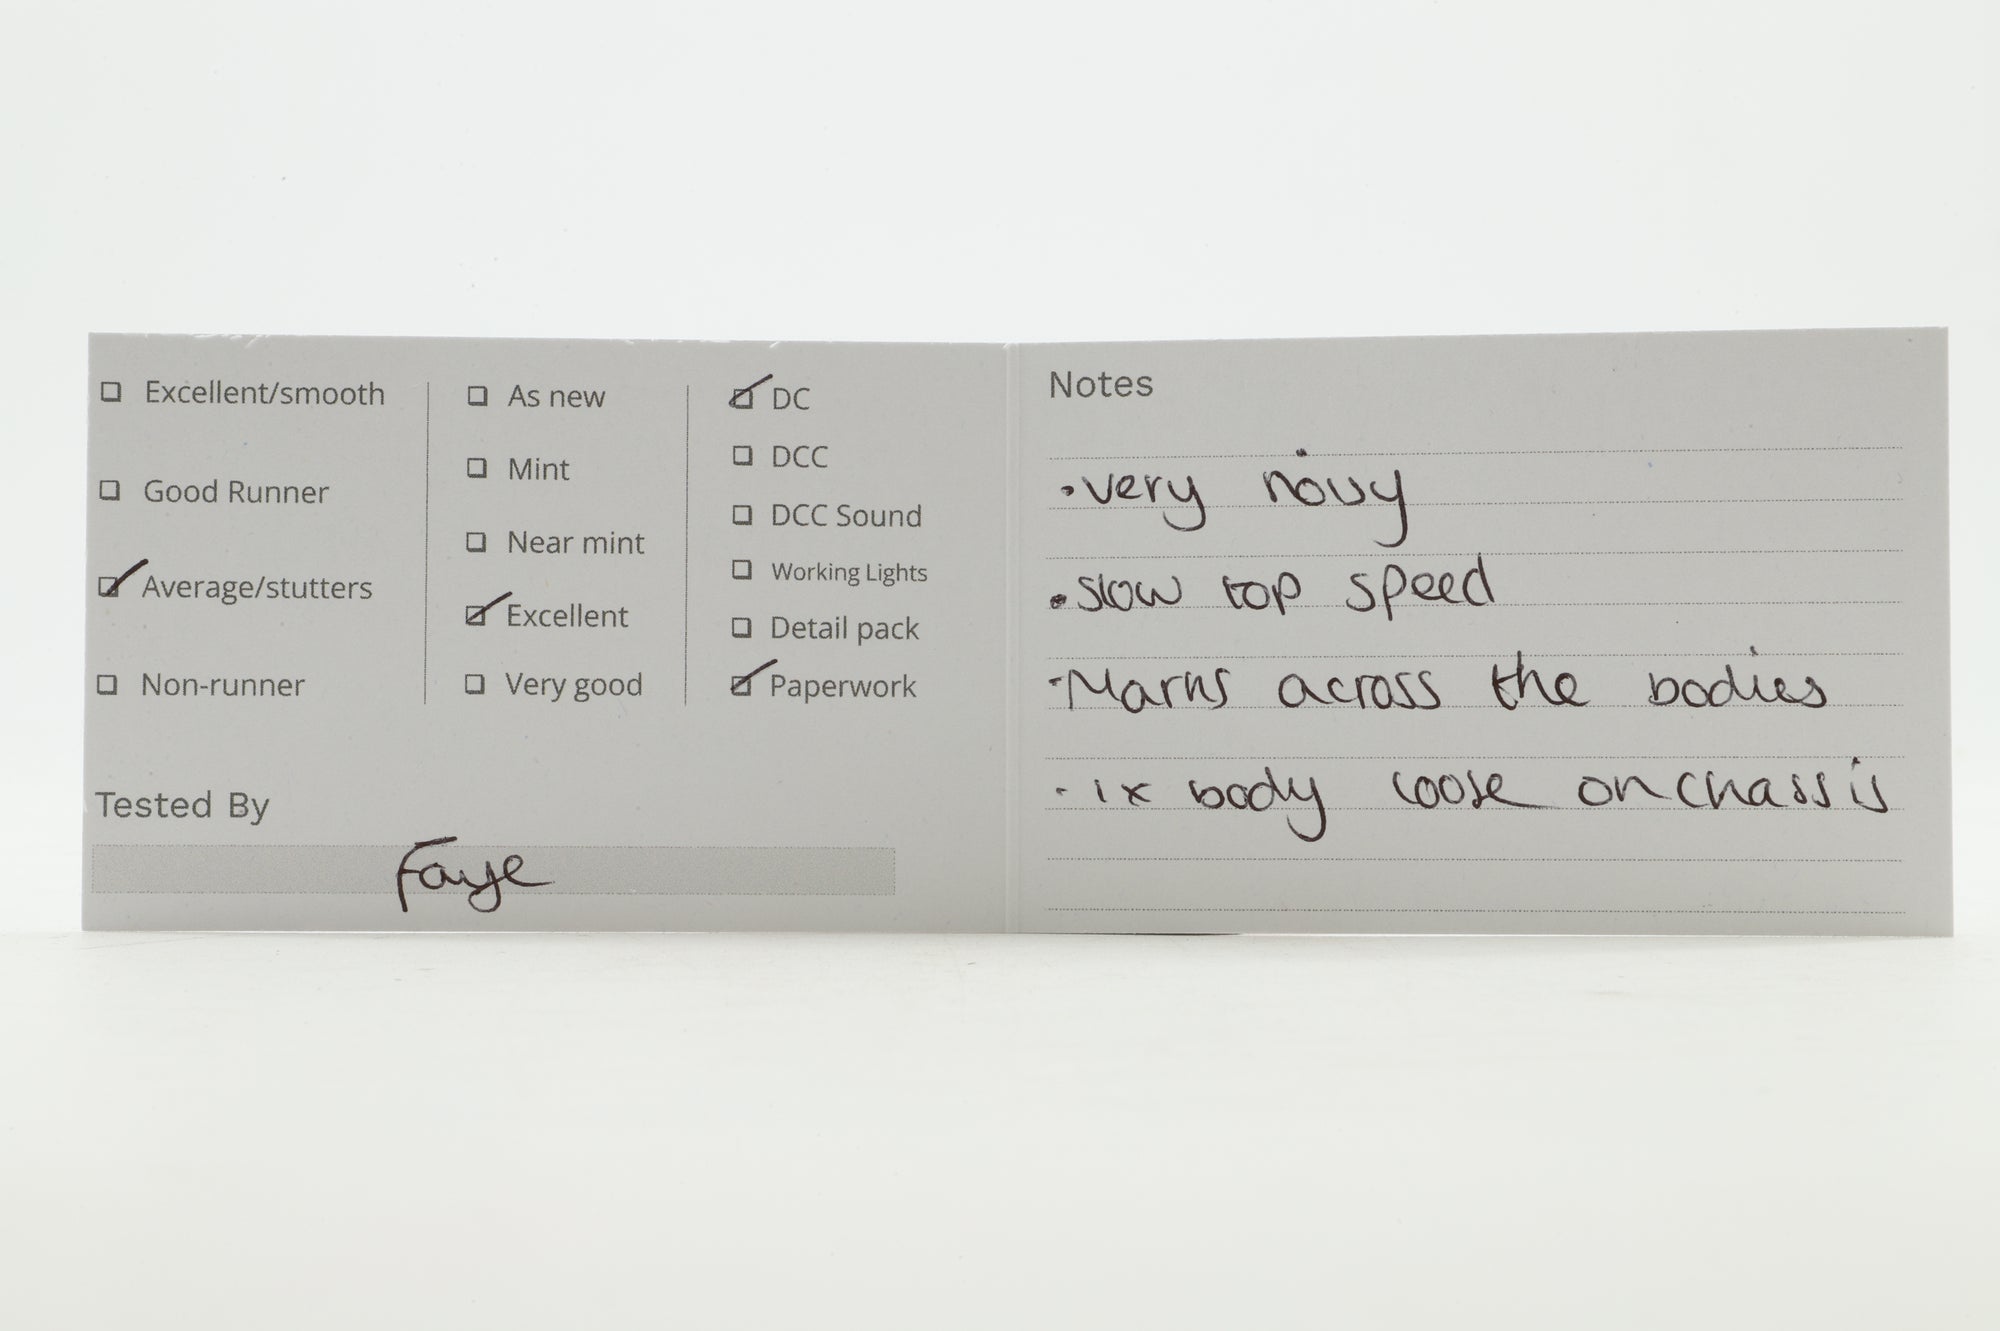 Excellent/smooth
Good Runner
Average/stutters
Non-runner
As new
Mint
Near mint
Excellent
Very good
DC
DCC
DCC Sound
Working Lights
Detail pack
Paperwork
Tested By
Faye
Notes
• very noisy
• slow top speed
- Marks across the bodies
- 1x body loose on chassis